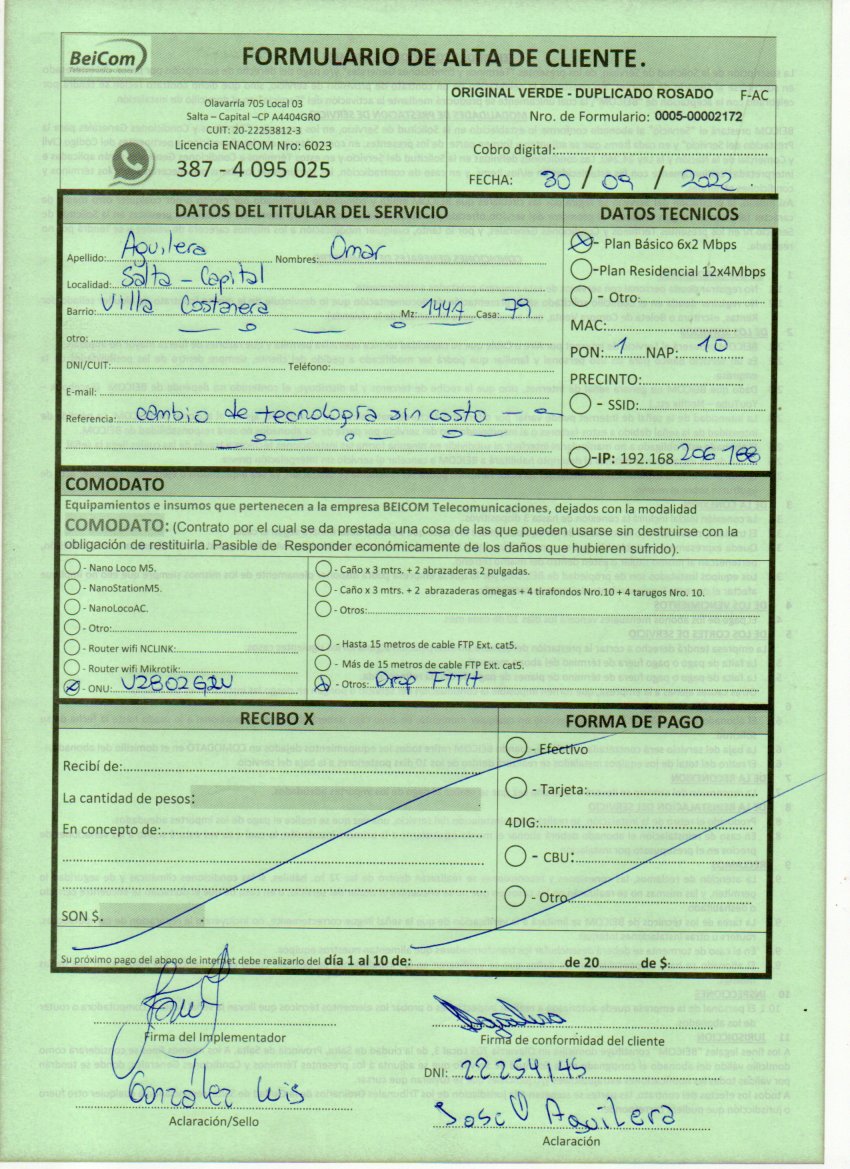 BeiCom
Telecomunicaciones
FORMULARIO DE ALTA DE CLIENTE.
Olavarría 705 Local 03
Salta – Capital –CP A4404GRO
CUIT: 20-22253812-3
Licencia ENACOM Nro: 6023
387 - 4 095 025
ORIGINAL VERDE - DUPLICADO ROSADO F-AC
Nro. de Formulario: 0005-00002172
Cobro digital:
FECHA: 30 / 09 / 2022
DATOS DEL TITULAR DEL SERVICIO
Apellido: Aguilera Nombres: Omar
Localidad: Salta - Capital
Barrio: Villa Costanera Mz: 144A Casa: 79
otro:
DNI/CUIT: Teléfono:
E-mail:
Referencia: cambio de tecnología sin costo
DATOS TECNICOS
- Plan Básico 6x2 Mbps
-Plan Residencial 12x4Mbps
- Otro:
MAC:
PON: 1 NAP: 10
PRECINTO:
- SSID:
-IP: 192.168 206 188
COMODATO
Equipamientos e insumos que pertenecen a la empresa BEICOM Telecomunicaciones, dejados con la modalidad
COMODATO: (Contrato por el cual se da prestada una cosa de las que pueden usarse sin destruirse con la
obligación de restituirla. Pasible de Responder económicamente de los daños que hubieren sufrido).
- Nano Loco M5.
- NanoStationM5.
- NanoLocoAC.
- Otro:
- Router wifi NCLINK:
- Router wifi Mikrotik:
- ONU: V2802GW
- Caño x 3 mtrs. + 2 abrazaderas 2 pulgadas.
- Caño x 3 mtrs. + 2 abrazaderas omegas + 4 tirafondos Nro.10 + 4 tarugos Nro. 10.
- Otros:
- Hasta 15 metros de cable FTP Ext. cat5.
- Más de 15 metros de cable FTP Ext. cat5.
- Otros: Drop FTTH
RECIBO X
Recibí de:
La cantidad de pesos:
En concepto de:
SON $.
FORMA DE PAGO
- Efectivo
- Tarjeta:
4DIG:
- CBU:
- Otro
Su próximo pago del abono de internet debe realizarlo del día 1 al 10 de: de 20 de $:
Firma del Implementador
González Luis
Aclaración/Sello
Aguilera
Firma de conformidad del cliente
DNI: 22254145
Jose O Aguilera
Aclaración